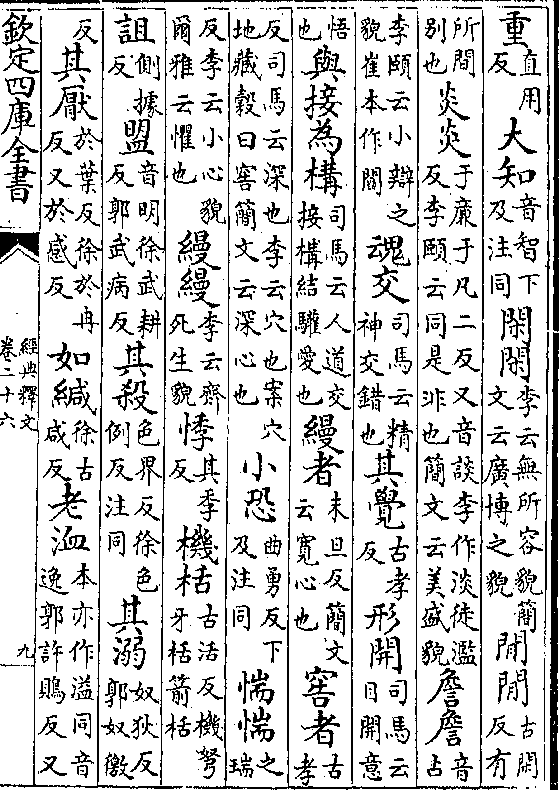 重直用反大知音智下及注同閑閑李云無所容貌簡文云廣博之貌閒閒古閑反有
所間別也炎炎于廉于凡二反又音談李作淡徒濫反李頤云同是非也簡文云美盛貌詹詹音占
李頤云小辯之貌崔本作閻魂交司馬云精神交錯也其覺古孝反形開司馬云目開意
悟也與接為構司馬云人道交接構結驩愛也縵者末旦反簡文云寬心也窖者古孝
反司馬云深也李云穴也案穴地藏穀曰窖簡文云深心也小恐曲勇反下及注同惴惴之瑞
反李云小心貌爾雅云懼也縵縵李云齊死生貌悸其季反機栝古活反機弩牙栝箭栝
詛側據反盟音明徐武耕反郭武病反其殺色界反徐色例反注同其溺奴狄反郭奴徼
反其厭於葉反徐於冉反又於感反如緘徐古咸反老洫本亦作溢同音逸郭許鵙反又
欽定四庫全書
經典釋文
卷二十六
九